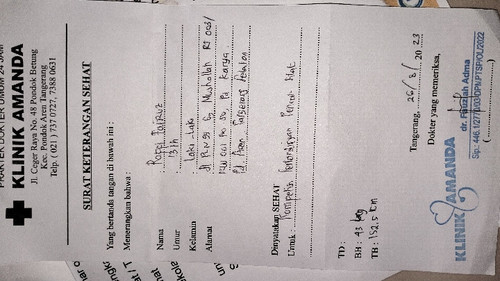 PRAKTEK DOKTER UMUM 24 JAM
KLINIK AMANDA
Jl. Ceger Raya No. 48 Pondok Betung
Kec. Pondok Aren Tangerang
Telp. (021) 737 0727, 7388 0631
SURAT KETERANGAN SEHAT
Yang bertanda tangan di bawah ini :
Menerangkan bahwa :
Nama :
Umur : 13 th
Kelamin : Laki - Laki
Alamat : Jl. Musholah RT 003/
RW 001 No 50, Pd Karya
Pd. Aren Tangerang Selatan
Dinyatakan SEHAT
Untuk : Kompetisi
TD :
BB : 43 kg
TB : 152,5 cm
Tangerang, 26/8/ 20 23
Dokter yang memeriksa,
KLINIK AMANDA
dr. Fauziah Adma